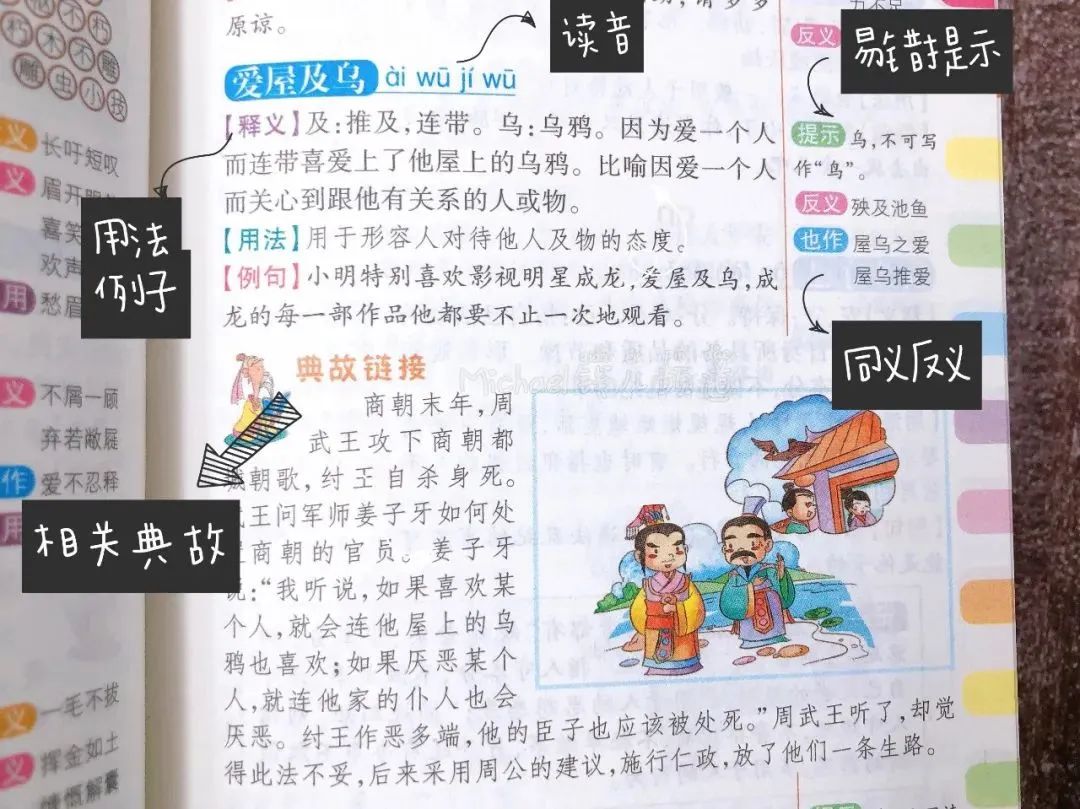 朽木不
朽木不雕
雕虫小技
长吁短叹
义
眉开
喜笑
欢声
用
愁眉
义
不屑一顾
弃若敝屣
作
爱不忍释
用
义
一毛不拔
义
挥金如土
慷慨解囊
原谅。
读音
爱屋及乌 ài wū jí wū
【释义】及:推及,连带。乌:乌鸦。因为爱一个人
而连带喜爱上了他屋上的乌鸦。比喻因爱一个人
而关心到跟他有关系的人或物。
用法
例子
【用法】用于形容人对待他人及物的态度。
【例句】小明特别喜欢影视明星成龙,爱屋及乌,成
龙的每一部作品他都要不止一次地观看。
典故链接
相关典故
商朝末年,周
武王攻下商朝都
城朝歌,纣王自杀身死。
武王问军师姜子牙如何处
商朝的官员。姜子牙
说:“我听说,如果喜欢某
个人,就会连他屋上的乌
鸦也喜欢;如果厌恶某个
人,就连他家的仆人也会
厌恶。纣王作恶多端,他的臣子也应该被处死。”周武王听了,却觉
得此法不妥,后来采用周公的建议,施行仁政,放了他们一条生路。
反义
易错提示
提示 乌,不可写
作“鸟”。
反义 殃及池鱼
也作 屋乌之爱
屋乌推爱
同义反义
Michael